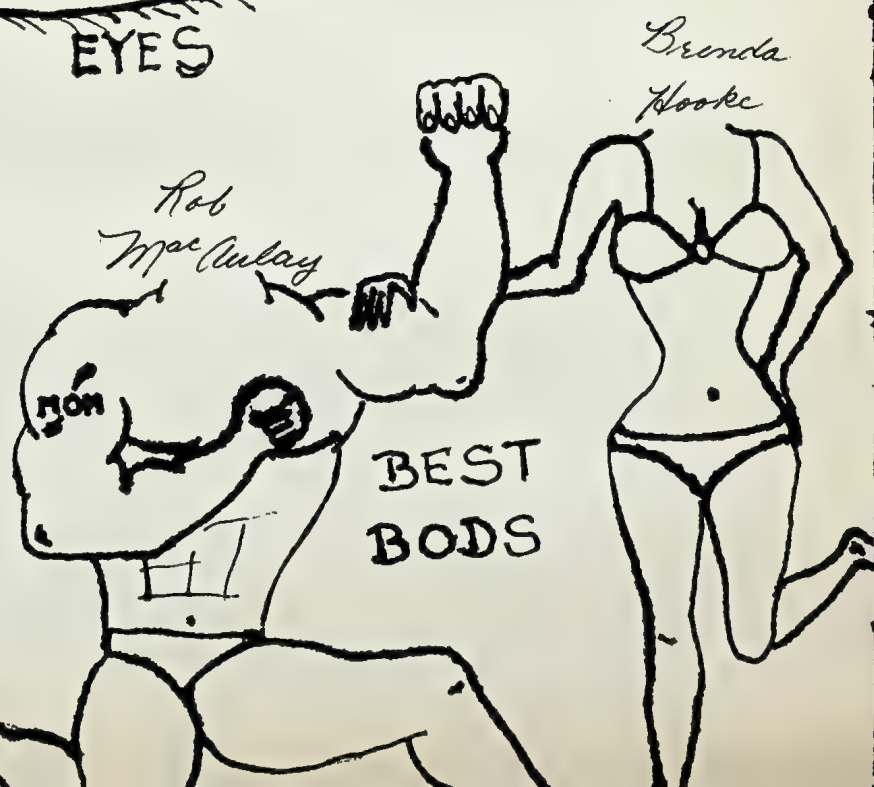 EYES
Brenda
Hooke
Rob
MacAulay
MOM
BEST
BODS